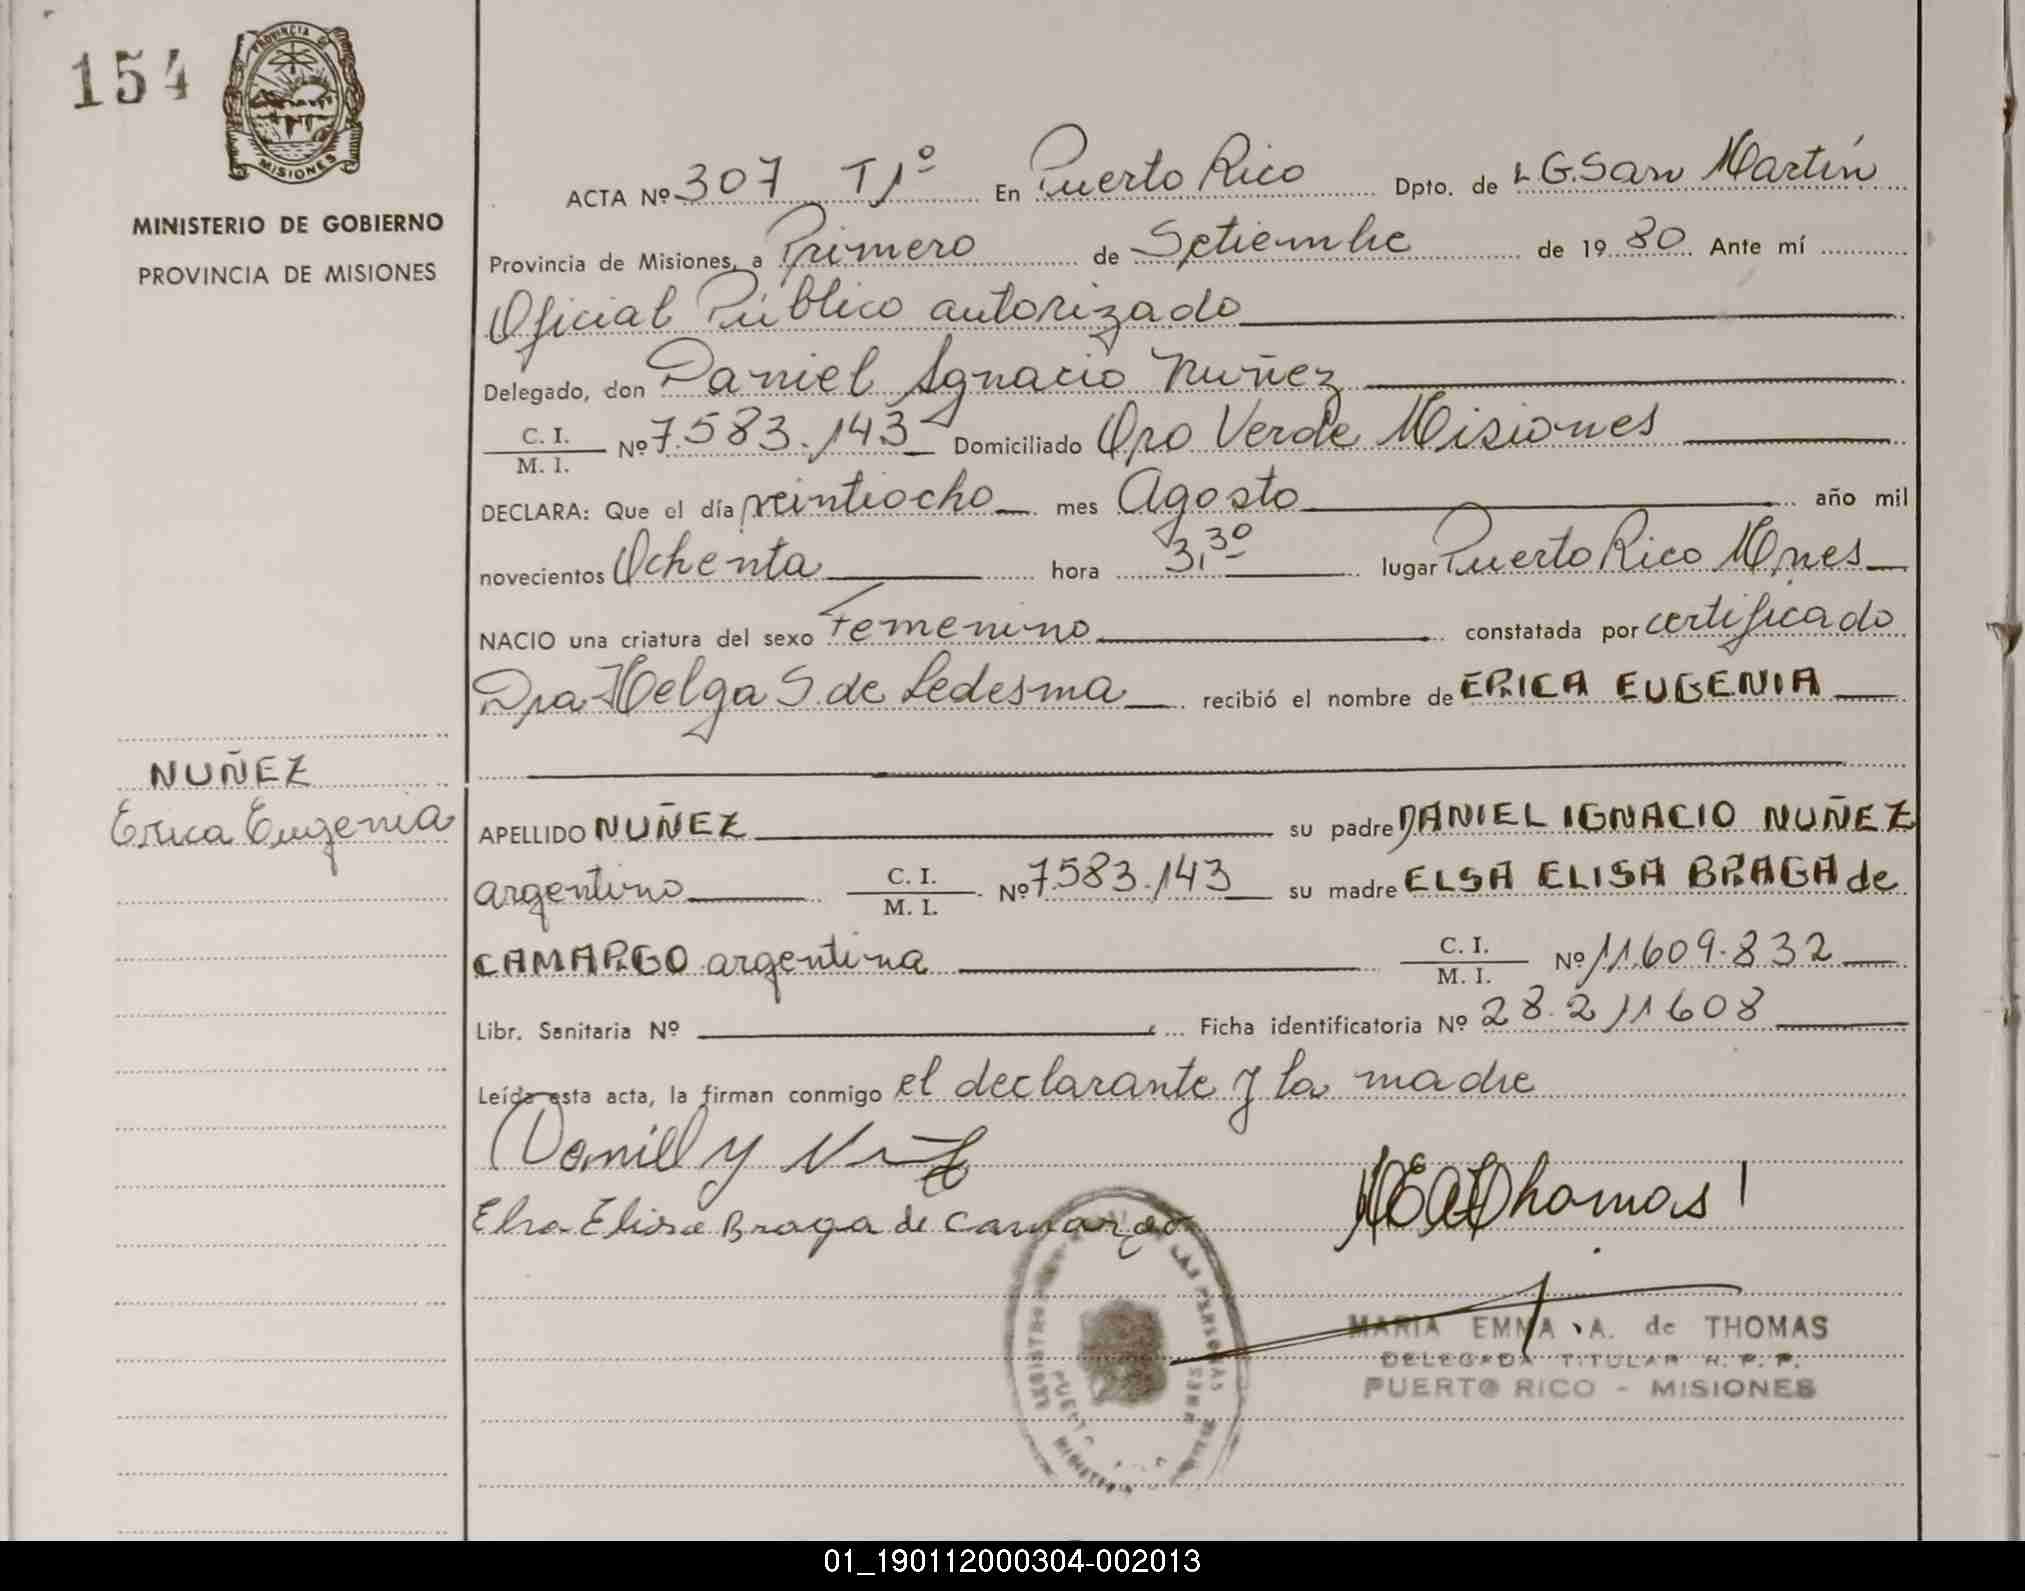 154
PROVINCIA DE
MISIONES
MINISTERIO DE GOBIERNO
PROVINCIA DE MISIONES
ACTA Nº 307 T1º En Puerto Rico Dpto. de L G.San Martín
Provincia de Misiones, a Primero de Setiembre de 1980 Ante mí
Oficial Público autorizado
Delegado, don Daniel Ignacio Nuñez
C. I.
M. I.
Nº 7.583.143 Domiciliado Oro Verde Misiones
DECLARA: Que el día veintiocho mes Agosto año mil
novecientos Ochenta hora 3,30 lugar Puerto Rico Mnes
NACIO una criatura del sexo Femenino constatada por certificado
Dra Helga S. de Ledesma recibió el nombre de ERICA EUGENIA
NUÑEZ
Erica Eugenia
APELLIDO NUÑEZ su padre DANIEL IGNACIO NUÑEZ
argentino C. I.
M. I. Nº 7.583.143 su madre ELSA ELISA BRAGA de
CAMARGO argentina C. I.
M. I. Nº 11.609.832
Libr. Sanitaria Nº Ficha identificatoria Nº 28.211608
Leída esta acta, la firman conmigo el declarante y la madre
Elsa Elisa Braga de Camargo
MARIA EMMA A. de THOMAS
DELEGADA TITULAR R. P. P.
PUERTO RICO - MISIONES
01_190112000304-002013